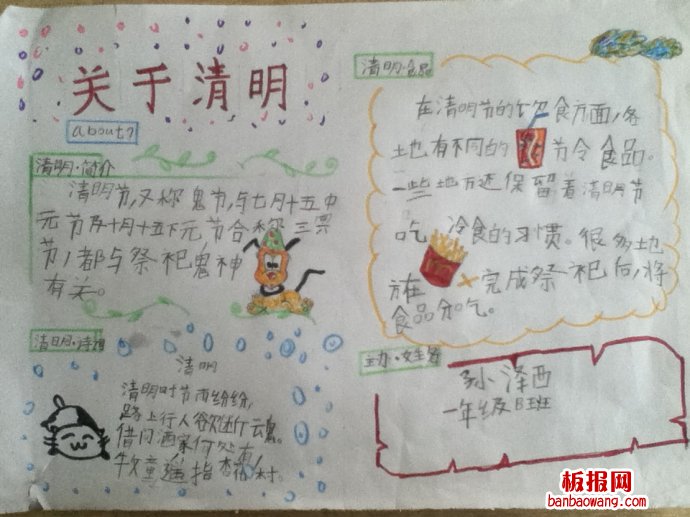 关于清明
about?
清明·简介
清明节,又称鬼节,与七月十五中
元节及十月十五下元节合称三冥
节,都与祭祀鬼神
有关。
清明·诗词
清明
清明时节雨纷纷,
路上行人欲断魂。
借问酒家何处有,
牧童遥指杏花村。
清明·食品
在清明节的饮食方面,各
地有不同的节令食品。
一些地方还保留着清明节
吃冷食的习惯。很多地
方在完成祭祀后,将
食品分吃。
主办·
孙泽西
一年级B班
板报网
banbaowang.com